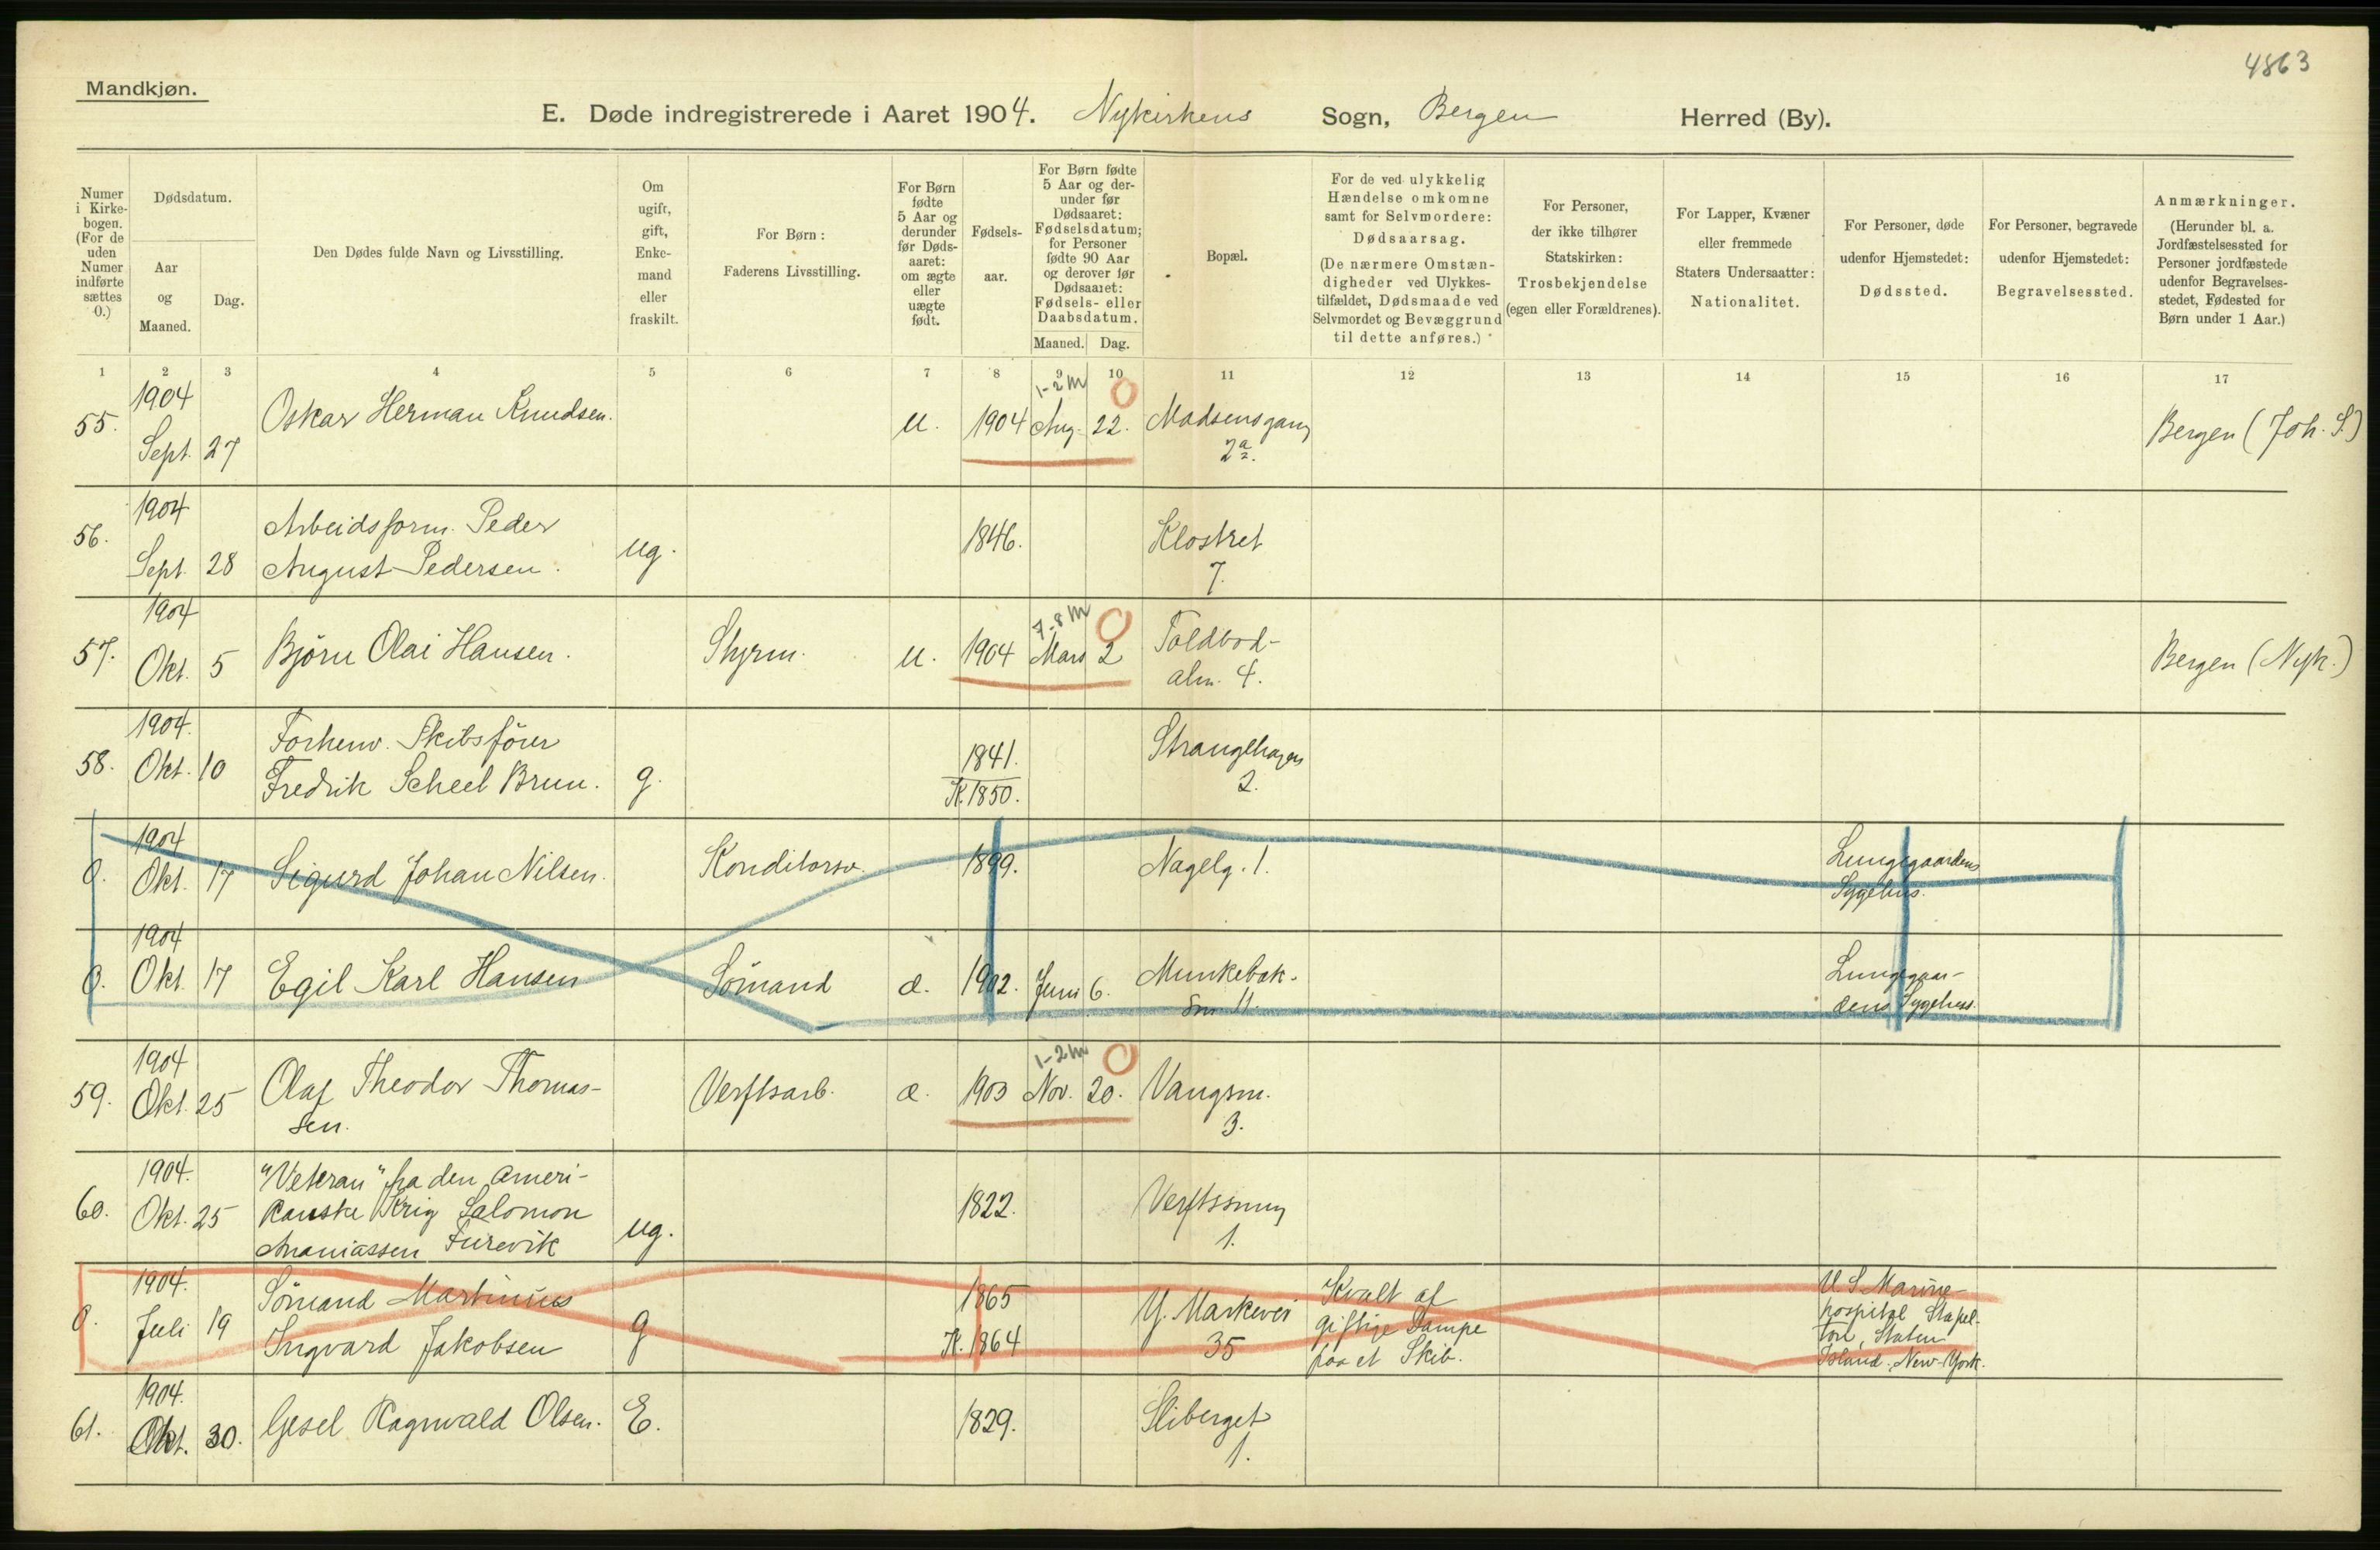 4863
Mandkjøn.
E. Døde indregistrerede i Aaret 1904. Nykirkens Sogn, Bergen Herred (By).
Numer i Kirkebogen. (For de uden Numer indførte sættes 0.)
Dødsdatum.
Aar og Maaned.
Dag.
Den Dødes fulde Navn og Livsstilling.
Om ugift, gift, Enkemand eller fraskilt.
For Børn:
Faderens Livsstilling.
For Børn fødte 5 Aar og derunder før Dødsaaret: om ægte eller uægte født.
Fødselsaar.
For Børn fødte 5 Aar og derunder før Dødsaaret: Fødselsdatum; for Personer fødte 90 Aar og derover før Dødsaaret: Fødsels- eller Daabsdatum.
Maaned. Dag.
Bopæl.
For de ved ulykkelig Hændelse omkomne samt for Selvmordere: Dødsaarsag.
(De nærmere Omstændigheder ved Ulykkestilfældet, Dødsmaade ved Selvmordet og Bevæggrund til dette anføres.)
For Personer, der ikke tilhører Statskirken: Trosbekjendelse (egen eller Forældrenes).
For Lapper, Kvæner eller fremmede Staters Undersaatter: Nationalitet.
For Personer, døde udenfor Hjemstedet: Dødssted.
For Personer, begravede udenfor Hjemstedet: Begravelsessted.
Anmærkninger.
(Herunder bl. a. Jordfæstelsessted for Personer jordfæstede udenfor Begravelsesstedet, Fødested for Børn under 1 Aar.)
1 2 3 4 5 6 7 8 9 10 11 12 13 14 15 16 17
55. 1904 Sept. 27 Oskar Herman Knudsen. u. 1904 1-2 m Aug. 22. Madsensgang 2a. Bergen (Joh. S.)
56. 1904 Sept. 28 Arbeidsform. Peder August Pedersen. ug. 1846. Klostret 7.
57. 1904 Okt. 5 Bjørn Olai Hansen. Styrm. u. 1904 7-8 m Mars 2 Toldbodalm. 4. Bergen (Nyk.)
58. 1904. Okt. 10 Forhenv. Skibsfører Fredrik Scheel Brun. g. 1841. K. 1850. Strangehagen 2.
0. 1904 Okt. 17 Sigurd Johan Nilsen. Konditorsv. 1899. Nagelg. 1. Lungegaardens Sygehus.
0. 1904 Okt. 17 Egil Karl Hansen Sömand æ. 1902. Juni 6. Munkebæk- 11. Lungegaardens Sygehus.
59. 1904 Okt. 25 Olaf Theodor Thomassen. Verftsarb. æ. 1903 1-2 m Nov. 20. Vangsm. 3.
60. 1904. Okt. 25 "Veteran" fra den amerikanske Krig Salomon Ananiassen Furevik ug. 1822. Verftssmug 1.
0. 1904. Juli 19 Sömand Martinius Ingvard Jakobsen g 1865 K. 1864 Y. Markevei 35 Kvalt af giftige Dampe paa et Skib. U. S. Marinehospital Stapelton, Staten Island, New-York.
61. 1904. Okt. 30. Gesel Ragnvald Olsen. E. 1829. Sliberget 1.